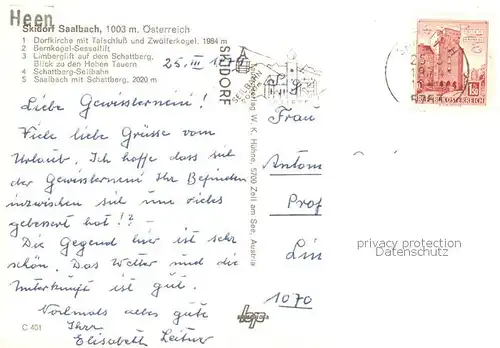 Heen
Skidorf Saalbach, 1003 m, Österreich
1 Dorfkirche mit Talschluß und Zwölferkogel, 1984 m
2 Bernkogel-Sessellift
3 Limberglift auf dem Schattberg,
Blick zu den Hohen Tauern
4 Schattberg-Seilbahn
5 Saalbach mit Schattberg, 2020 m
25. III
Liebe Gewissternemi!
Viele liebe Grüsse vom
Urlaub. Ich hoffe dass sich
der Gewissternemi Ihr Befinden
inzwischen sich um vieles
gebessert hat!?
Die Gegend hier ist sehr
schön. Das Wetter und die
Unterkunft ist gut.
Nochmals alles gute
Ihre
Elisabeth Leitner
C 401
SKIDORF
SEILBAHN
W. K. Hühne, 5700 Zell am See, Austria
REPUBLIK ÖSTERREICH
Frau
Antom
Prof
Lin
1070
privacy protection
Datenschutz